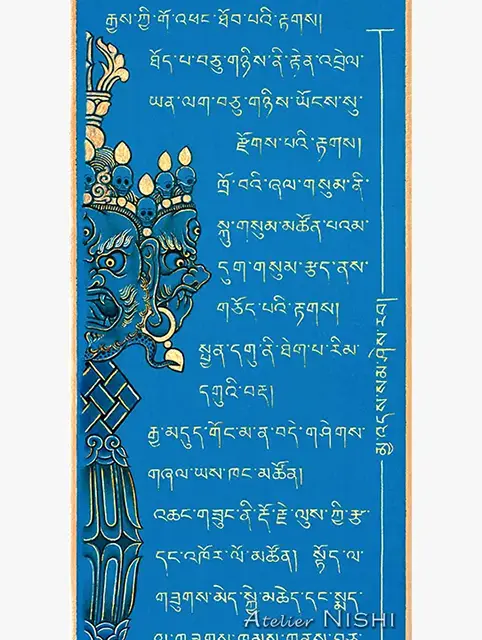 རྒྱས་ཀྱི་གོ་འཕང་ཐོབ་པའི་རྟགས།
ཐོད་པ་བཅུ་གཉིས་ནི་རྟེན་འབྲེལ་
ཡན་ལག་བཅུ་གཉིས་ཡོངས་སུ་
རྫོགས་པའི་རྟགས།
ཁྲོ་བའི་ཞལ་གསུམ་ནི་
སྐུ་གསུམ་མཚོན་པའམ་
དུག་གསུམ་རྩད་ནས་
གཅོད་པའི་རྟགས།
སྤྱན་དགུ་ནི་ཐེག་པ་རིམ་
དགུའི་བརྡ།
རྒྱ་མདུད་གོང་མ་ན་བདེ་གཤེགས་
གཞལ་ཡས་ཁང་མཚོན།
འཆང་གཟུང་ནི་རྡོ་རྗེ་ལུས་ཀྱི་རྩ་
དང་འཁོར་ལོ་མཚོན། སྟོད་ལ་
གཟུགས་མེད་སྐྱེ་མཆེད་དང་སྨད་
Atelier NISHI